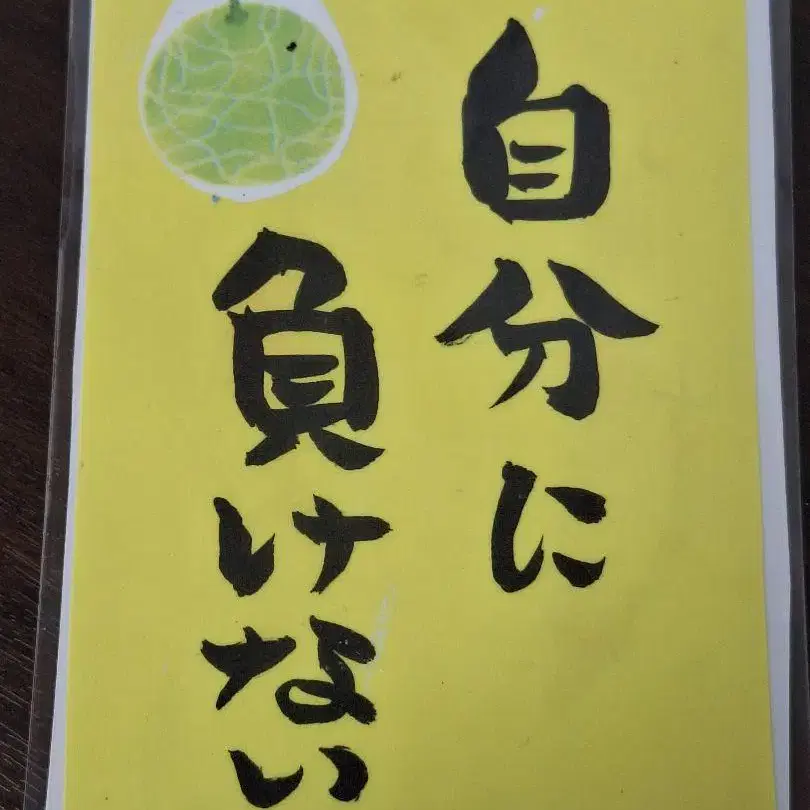 自分に
負けない